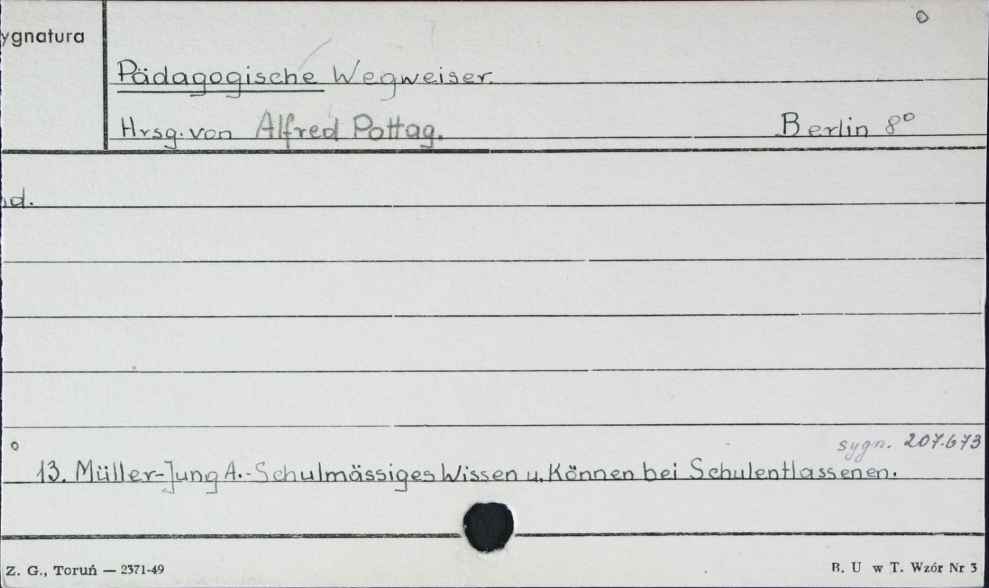 ygnatura
Pädagogische Wegweiser.
Hrsg. von Alfred Pottag. Berlin 8°
d.
sygn. 207.673
13. Müller-Jung A.- Schulmässiges Wissen u. Können bei Schulentlassenen.
Z. G., Toruń — 2371-49 B. U w T. Wzór Nr 3